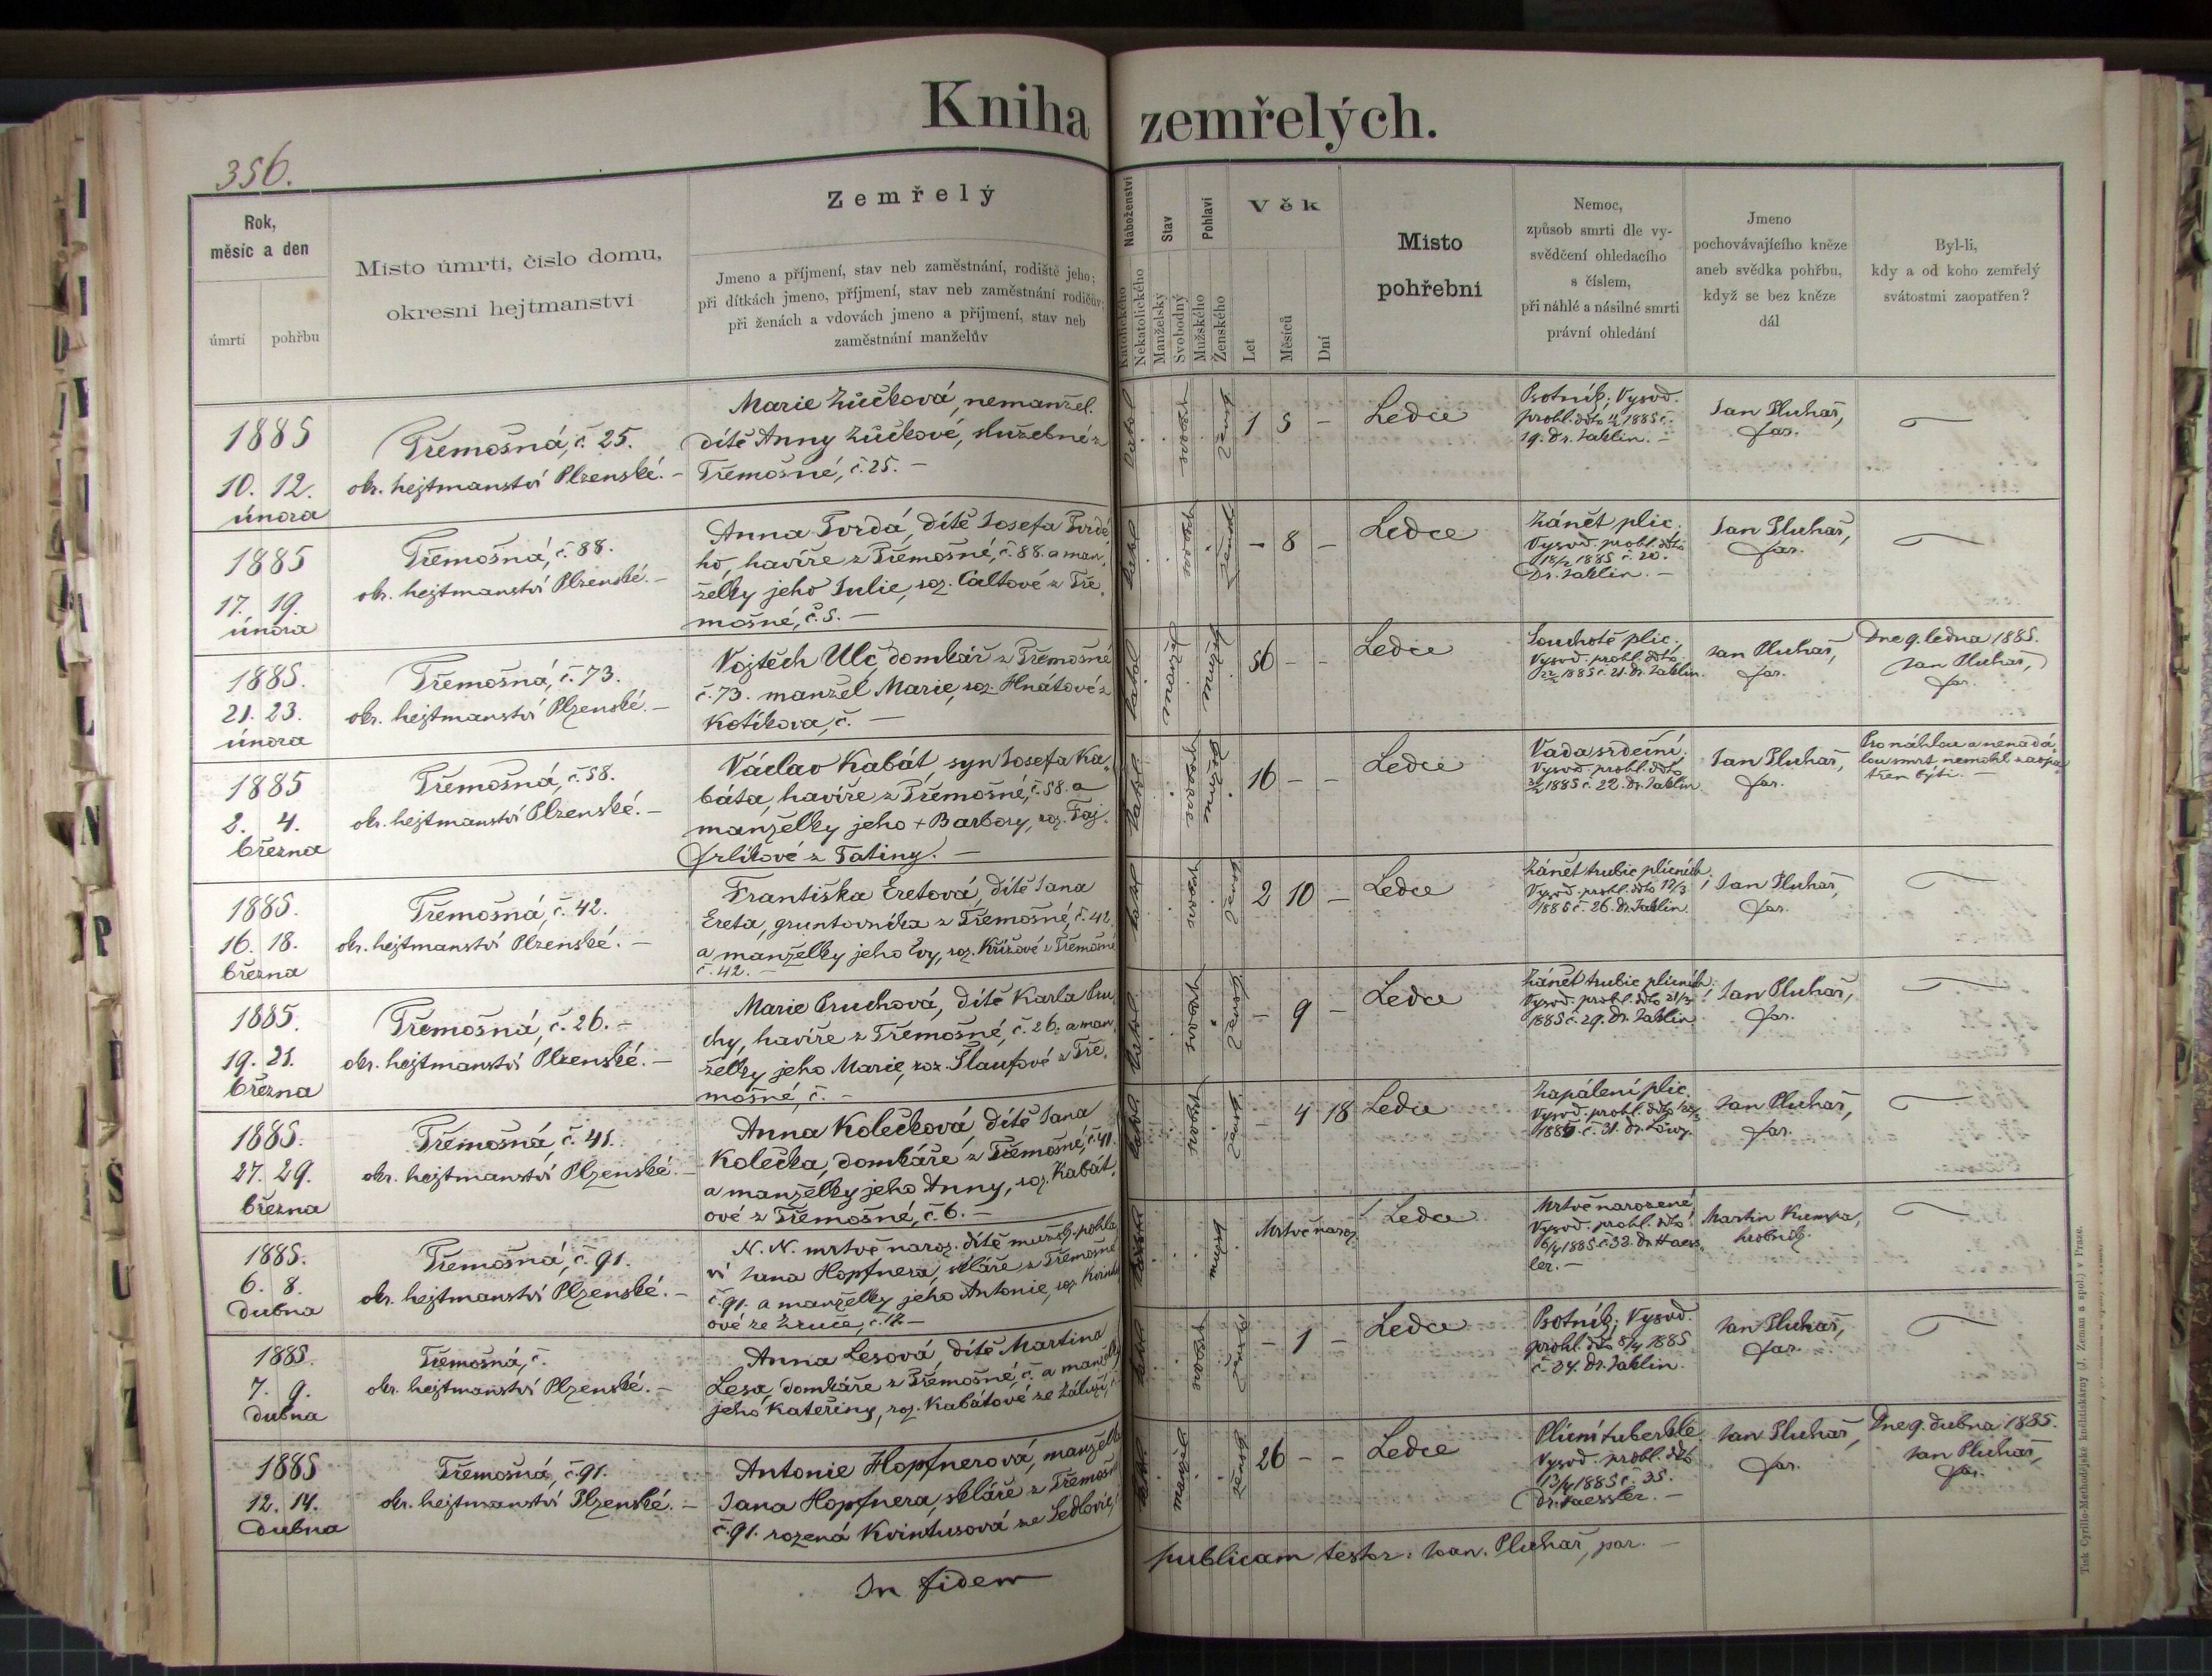 Kniha zemřelých.
356.
Rok,
měsíc a den
úmrtí
pohřbu
Místo úmrtí, číslo domu,
okresní hejtmanství
Zemřelý
Jmeno a příjmení, stav neb zaměstnání, rodiště jeho;
při dítkách jmeno, příjmení, stav neb zaměstnání rodičův;
při ženách a vdovách jmeno a příjmení, stav neb
zaměstnání manželův
Náboženství
Katolického
Nekatolického
Stav
Manželský
Svobodný
Pohlaví
Mužského
Ženského
Věk
Let
Měsíců
Dní
Místo
pohřební
Nemoc,
způsob smrti dle vy-
svědčení ohledacího
s číslem,
při náhlé a násilné smrti
právní ohledání
Jmeno
pochovávajícího kněze
aneb svědka pohřbu,
když se bez kněze
dál
Byl-li,
kdy a od koho zemřelý
svátostmi zaopatřen?
1885
10. 12.
února
Třemošná, č. 25.
okr. hejtmanství Plzenské. –
Marie Žůčková, nemanžel.
dítě Anny Žůčkové, služebné z
Třemošné, č. 25. –
katol.
svobod.
žensk.
1 5 –
Ledce
Psotník; Vysvěd.
prohl. ddto 1885 č.
19. Dr. Jaklin. –
Jan Pluhař,
far.
1885
17. 19.
února
Třemošná, č. 88.
okr. hejtmanství Plzenské. –
Anna Tvrdá, dítě Josefa Tvrdé-
ho, havíře z Třemošné, č. 88. a man-
želky jeho Julie, roz. Caltové z Tře-
mošné, č. 5. –
– 8 –
Ledce
Zánět plic.
Vysvěd. prohl. ddto
18/2 1885 č. 20.
Dr. Jaklin. –
Jan Pluhař,
far.
1885.
21. 23.
února
Třemošná, č. 73.
okr. hejtmanství Plzenské. –
Vojtěch Ulč, domkář z Třemošné
č. 73. manžel Marie, roz. Hnátové z
Kotíkova, č. –
56 – –
Ledce
Souchotě plic;
Vysvěd. prohl. ddto
22/2 1885 č. 21. Dr. Jaklin.
Jan Pluhař,
far.
Dne 9. ledna 1885.
Jan Pluhař,
far.
1885
2. 4.
března
Třemošná, č. 58.
okr. hejtmanství Plzenské. –
Václav Kabát syn Josefa Ka-
báta, havíře z Třemošné, č. 58. a
manželky jeho + Barbory, roz. Faj-
frlíkové z Tatiny. –
16 – –
Ledce
Vada srdeční.
Vysvěd. prohl. ddto
3/3 1885 č. 22. Dr. Jaklin
Jan Pluhař,
far.
Pro náhlou a nenadá-
lou smrt nemohl zaopa-
třen býti. –
1885.
16. 18.
března
Třemošná, č. 42.
okr. hejtmanství Plzenské. –
Františka Eretová, dítě Jana
Ereta, gruntovníka z Třemošné, č. 42.
a manželky jeho Evy, roz. Křížové z Třemošné
č. 42. –
2 10 –
Ledce
Zánět trubic plicních;
Vysvěd. prohl. ddto 17/3
1885 č. 26. Dr. Jaklin.
Jan Pluhař,
far.
1885.
19. 21.
března
Třemošná, č. 26. –
okr. hejtmanství Plzenské. –
Marie Pruchová, dítě Karla Pru-
chy, havíře z Třemošné, č. 26. a man-
želky jeho Marie, roz. Šlaufové z Tře-
mošné, č. –
– 9 –
Ledce
Zánět trubic plicních;
Vysvěd. prohl. ddto 21/3
1885 č. 29. Dr. Jaklin
Jan Pluhař,
far.
1885.
27. 29.
března
Třemošná, č. 41.
okr. hejtmanství Plzenské. –
Anna Kolečková dítě Jana
Kolečka, domkáře z Třemošné, č. 41.
a manželky jeho Anny, roz. Kabát-
ové z Třemošné, č. 6. –
– 4 18
Ledce
Zapálení plic.
Vysvěd. prohl. ddto
1885. č. 31. Dr. Löwy.
Jan Pluhař,
far.
1885.
6. 8.
dubna
Třemošná, č. 91.
okr. hejtmanství Plzenské. –
N. N. mrtvě naroz. dítě mužsk. pohla-
ví Jana Hopfnera, skláře z Třemošné
č. 91. a manželky jeho Antonie, roz.
ové ze Zruče, č. 12 –
Mrtvě naroz.
Ledce
Mrtvě narozené;
Vysvěd. prohl. ddto
6/4 1885 č. 32. Dr. Haess-
ler. –
Martin Kumpa,
hrobník.
1885.
7. 9.
dubna
Třemošná, č.
okr. hejtmanství Plzenské. –
Anna Lesová, dítě Martina
Lesa, domkáře z Třemošné, č. a manželky
jeho Kateřiny, roz. Kabátové ze Záluží, č.
– 1 –
Ledce
Psotník; Vysvěd.
prohl. ddto 8/4 1885
č. 34. Dr. Jaklin.
Jan Pluhař,
far.
1885
12. 14.
dubna
Třemošná, č. 91.
okr. hejtmanství Plzenské. –
Antonie Hopfnerová, manželka
Jana Hopfnera, skláře z Třemošné
č. 91. rozená Kvintusová ze Sedlovic,
26 – –
Ledce
Plicní tuberkle.
Vysvěd. prohl. ddto
13/4 1885 č. 35.
Dr. Haessler. –
Jan Pluhař,
far.
Dne 9. dubna 1885.
Jan Pluhař,
far.
In fidem publicam testor: Joan. Pluhař, par. –
Tisk Cyrillo-Methodějské knihtiskárny (J. Zeman a spol.) v Praze.